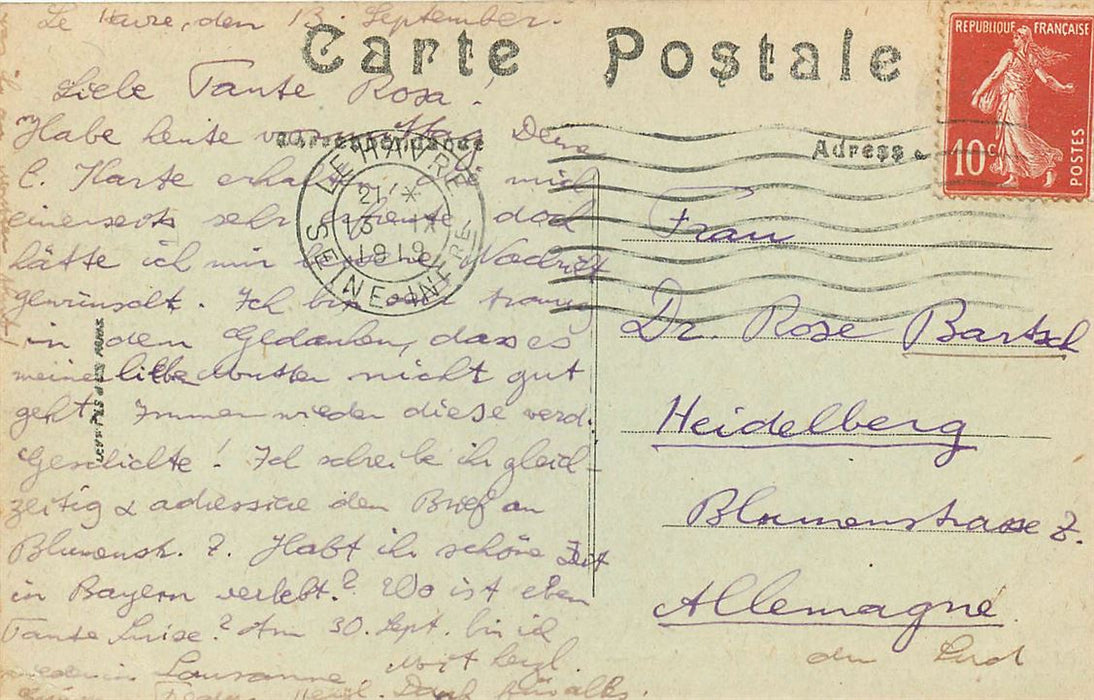 Le Havre, den 13. September.
Carte Postale
Liebe Tante Rosa!
Habe heute Deine
Correspondance
l. Karte erhalten die mich
einerseits sehr erfreute doch
hätte ich mir bessere Nachricht
gewünscht. Ich bin sehr traurig
in dem Gedanken, dass es
meiner lieben Mutter nicht gut
geht. Immer wieder diese verd.
Geschichte! Ich schreibe ihr gleich-
zeitig & adressiere den Brief an
Blumenstr. 7. Habt ihr schöne Zeit
in Bayern verlebt? Wo ist eben
Tante Luise? Am 30. Sept. bin ich
wieder in Lausanne. Mit herzl.
Herzl. Dank für alles.
LE HAVRE
SEINE-INFRE
21 *
13 IX
1919
REPUBLIQUE FRANÇAISE
10c
POSTES
Adresse
Frau
Dr. Rose Bartsch
Heidelberg
Blumenstrasse 7.
Allemagne